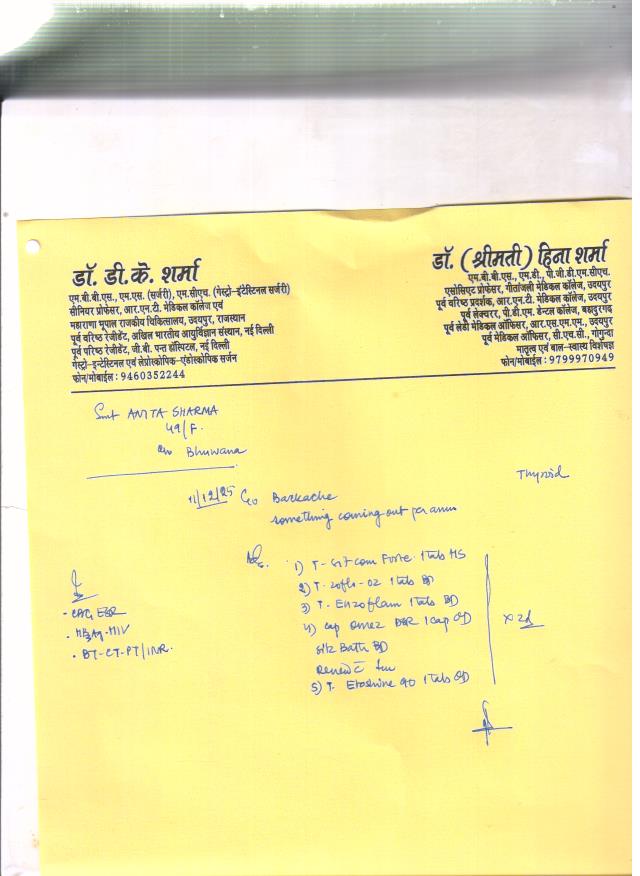 डॉ. डी.के. शर्मा
एम.बी.बी.एस., एम.एस. (सर्जरी), एम.सीएच. (गेस्ट्रो-इंटेस्टिनल सर्जरी)
सीनियर प्रोफेसर, आर.एन.टी. मेडिकल कॉलेज एवं
महाराणा भूपाल राजकीय चिकित्सालय, उदयपुर, राजस्थान
पूर्व वरिष्ठ रेजीडेंट, अखिल भारतीय आयुर्विज्ञान संस्थान, नई दिल्ली
पूर्व वरिष्ठ रेजीडेंट, जी.बी. पन्त हॉस्पिटल, नई दिल्ली
गेस्ट्रो-इन्टेस्टिनल एवं लेप्रोस्कोपिक-एंडोस्कोपिक सर्जन
फोन/मोबाईल : 9460352244
डॉ. (श्रीमती) हिना शर्मा
एम.बी.बी.एस., एम.डी., पी.जी.डी.एम.सीएच.
एसोसिएट प्रोफेसर, गीतांजली मेडिकल कॉलेज, उदयपुर
पूर्व वरिष्ठ प्रदर्शक, आर.एन.टी. मेडिकल कॉलेज, उदयपुर
पूर्व लेक्चरर, पी.डी.एम. डेन्टल कॉलेज, बहादुरगढ़
पूर्व लेडी मेडिकल ऑफिसर, आर.एस.एम.एम., उदयपुर
पूर्व मेडिकल ऑफिसर, सी.एच.सी., गोगुन्दा
मातृत्व एवं बाल-स्वास्थ्य विशेषज्ञ
फोन/मोबाईल : 9799970949
Smt ANITA SHARMA
49/F.
Bhuwana
Thyroid
11/12/25 C/o Backache
something coming out per anum
Adv.
1) T- Forte 1 tab HS
2) T- Zoflo-OZ 1 tab BD
3) T- Enzoflam 1 tab BD
4) Cap Omez DSR 1 cap OD
Sitz Bath BD
Renew
5) T. 90 1 tab OD
x 2d
- CBC, ESR
- HBsAg-HIV
- BT-CT-PT/INR.